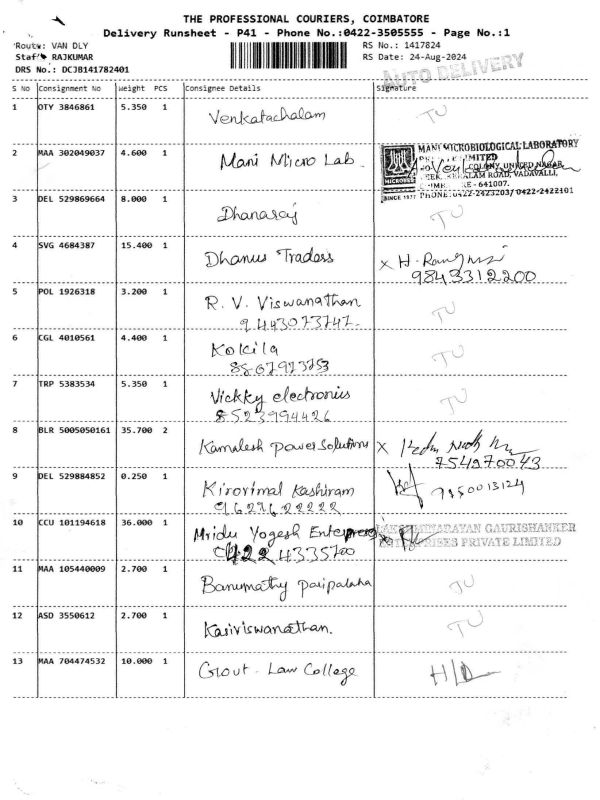 THE PROFESSIONAL COURIERS, COIMBATORE
Delivery Runsheet - P41 - Phone No.:0422-3505555 - Page No.:1
Route: VAN DLY
RS No.: 1417824
Staff: RAJKUMAR
RS Date: 24-Aug-2024
DRS No.: DCJB141782401
AUTO DELIVERY
S No Consignment No Weight PCS Consignee Details Signature
1 OTY 3846861 5.350 1 Venkatachalam TU
2 MAA 302049037 4.600 1 Mani Micro Lab
MANI MICROBIOLOGICAL LABORATORY
LIMITED
COLONY, UNITED NAGAR,
ROAD, VADAVALLI,
- 641007.
SINCE 1977 PHONE: 0422-2423203/ 0422-2422101
3 DEL 529869664 8.000 1 Dhanaraj TU
4 SVG 4684387 15.400 1 Dhanus Tradess x H.
9843312200
5 POL 1926318 3.200 1 R. V. Viswanathan TU
6 CGL 4010561 4.400 1 Kokila TU
7 TRP 5383534 5.350 1 Vickky electronius TU
8523994426
8 BLR 5005050161 35.700 2 Kamalesh Power Solutions x
754970043
9 DEL 529884852 0.250 1 Kirorimal Kashiram
9629622222
10 CCU 101194618 36.000 1 Mridu Yogesh
0422 4335700
LAKSHMINARAYAN GAURISHANKER
ENTERPRISES PRIVATE LIMITED
11 MAA 105440009 2.700 1 Banumathy TU
12 ASD 3550612 2.700 1 Kasiviswanathan. TU
13 MAA 704474532 10.000 1 Govt. Law College H/D